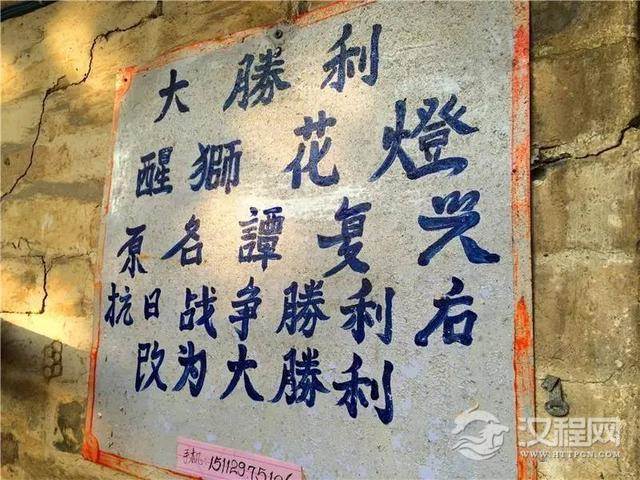 大勝利
醒獅花燈
原名譚复兴
抗日战争勝利后
改为大勝利
手机
汉程网
WWW.HTTPCN.COM